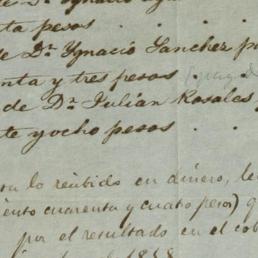 de Dn Ygnacio
ta pesos
de Dn. Ygnacio Sanchez po
enta y tres pesos
de Dn. Julian Rosales
te y ocho pesos
lo recibido en dinero, de
ciento cuarenta y cuatro pesos) q
por el resultado en el cob
de 1858